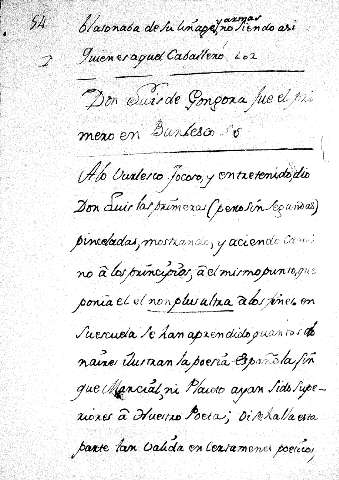 54
blasonaba de su linage, y armas no siendo asi
quien es aquel Caballero
Don Luis de Gongora fue el pri
mero en Burlesco
A lo burlesco jocoso, y entretenido, dio
Don Luis las primeras (pero sin segundas)
pinceladas, mostrando, y aciendo cami
no â los principios, â el mismo punto, que
ponia el el non plus ultra â los fines en
su escuela se han aprendido quantos do
naires ilustran la poesia Española sin
que Marcial, ni Plauto ayan sido supe
riores â Nuestro Poeta; se halla esta
parte tan valida en certamenes poeticos,